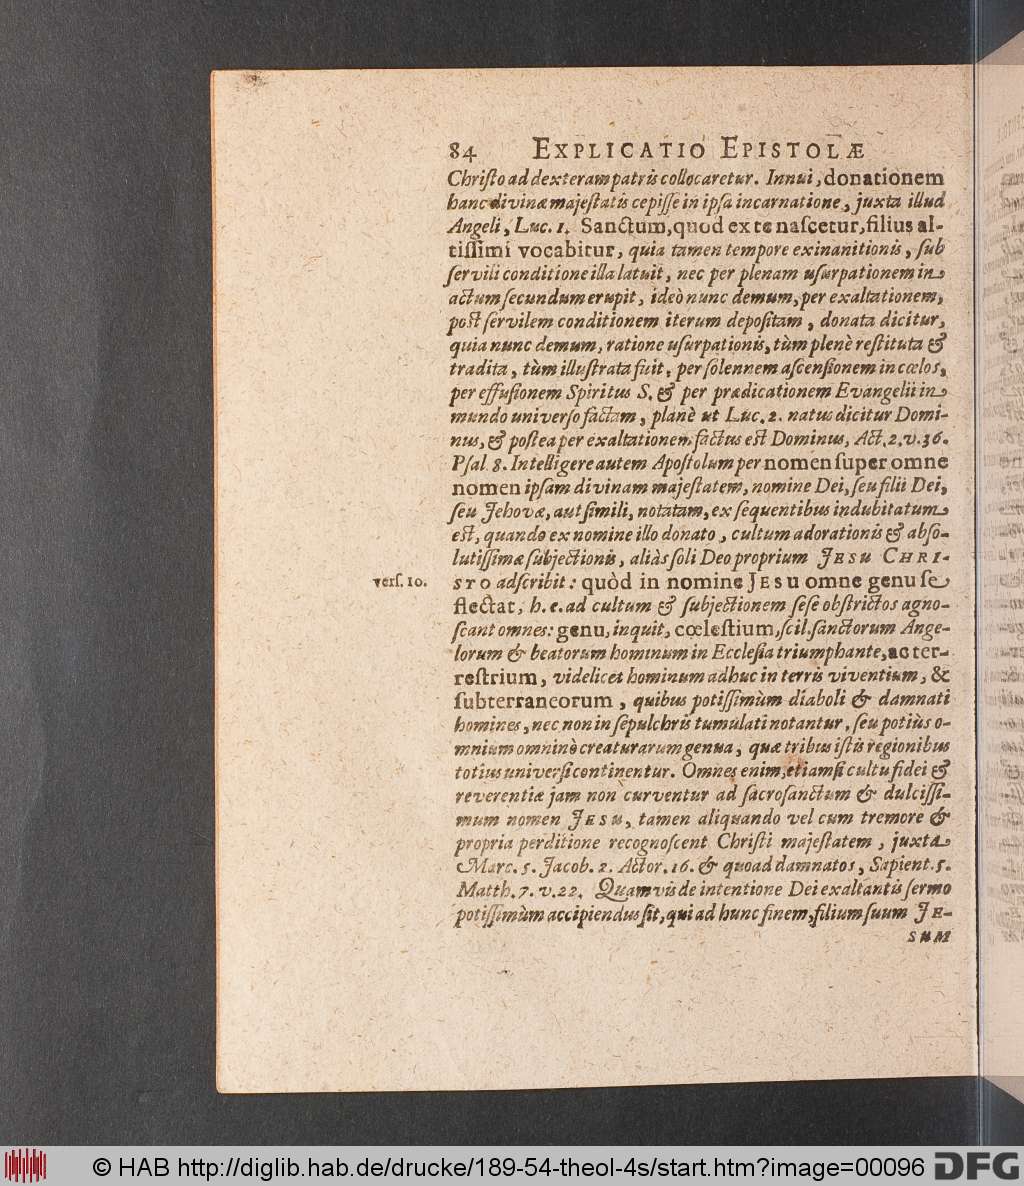 84 EXPLICATIO EPISTOLÆ
Chriſto ad dexteram patris collocaretur. Innui, donationem
hanc divinæ majeſtatis cepiſſe in ipſa incarnatione, juxta illud
Angeli, Luc. 1. Sanctum, quod ex te naſcetur, filius al-
tiſſimi vocabitur, quia tamen tempore exinanitionis, ſub
ſervili conditione illa latuit, nec per plenam uſurpationem in
actum ſecundum erupit, ideò nunc demum, per exaltationem,
poſt ſervilem conditionem iterum depoſitam, donata dicitur,
quia nunc demum, ratione uſurpationis, tùm plenè reſtituta &
tradita, tùm illuſtrata fuit, per ſolennem aſcenſionem in cœlos,
per effuſionem Spiritus S. & per prædicationem Evangelii in
mundo univerſo factam, planè ut Luc. 2. natus dicitur Domi-
nus, & poſtea per exaltationem factus eſt Dominus, Act. 2. v. 36.
Pſal. 8. Intelligere autem Apoſtolum per nomen ſuper omne
nomen ipſam divinam majeſtatem, nomine Dei, ſeu filii Dei,
ſeu Jehovæ, aut ſimili, notatam, ex ſequentibus indubitatum
eſt, quando ex nomine illo donato, cultum adorationis & abſo-
lutiſſimæ ſubjectionis, aliàs ſoli Deo proprium JESU CHRI-
verſ. 10. STO adſcribit: quòd in nomine JESU omne genu ſe
flectat, h. e. ad cultum & ſubjectionem ſeſe obſtrictos agno-
ſcant omnes: genu, inquit, cœleſtium, ſcil. ſanctorum Ange-
lorum & beatorum hominum in Eccleſia triumphante, ac ter-
reſtrium, videlicet hominum adhuc in terris viventium, &
ſubterraneorum, quibus potiſſimùm diaboli & damnati
homines, nec non in ſepulchris tumulati notantur, ſeu potiùs o-
mnium omninò creaturarum genua, quæ tribus iſtis regionibus
totius univerſi continentur. Omnes enim, etiamſi cultu fidei &
reverentiæ jam non curventur ad ſacroſanctum & dulciſſi-
mum nomen JESU, tamen aliquando vel cum tremore &
propria perditione recognoſcent Chriſti majeſtatem, juxta
Marc. 5. Jacob. 2. Actor. 16. & quoad damnatos, Sapient. 5.
Matth. 7. v. 22. Quamvis de intentione Dei exaltantis ſermo
potiſſimùm accipiendus ſit, qui ad hunc finem, filium ſuum JE-
SUM
© HAB http://diglib.hab.de/drucke/189-54-theol-4s/start.htm?image=00096 DFG